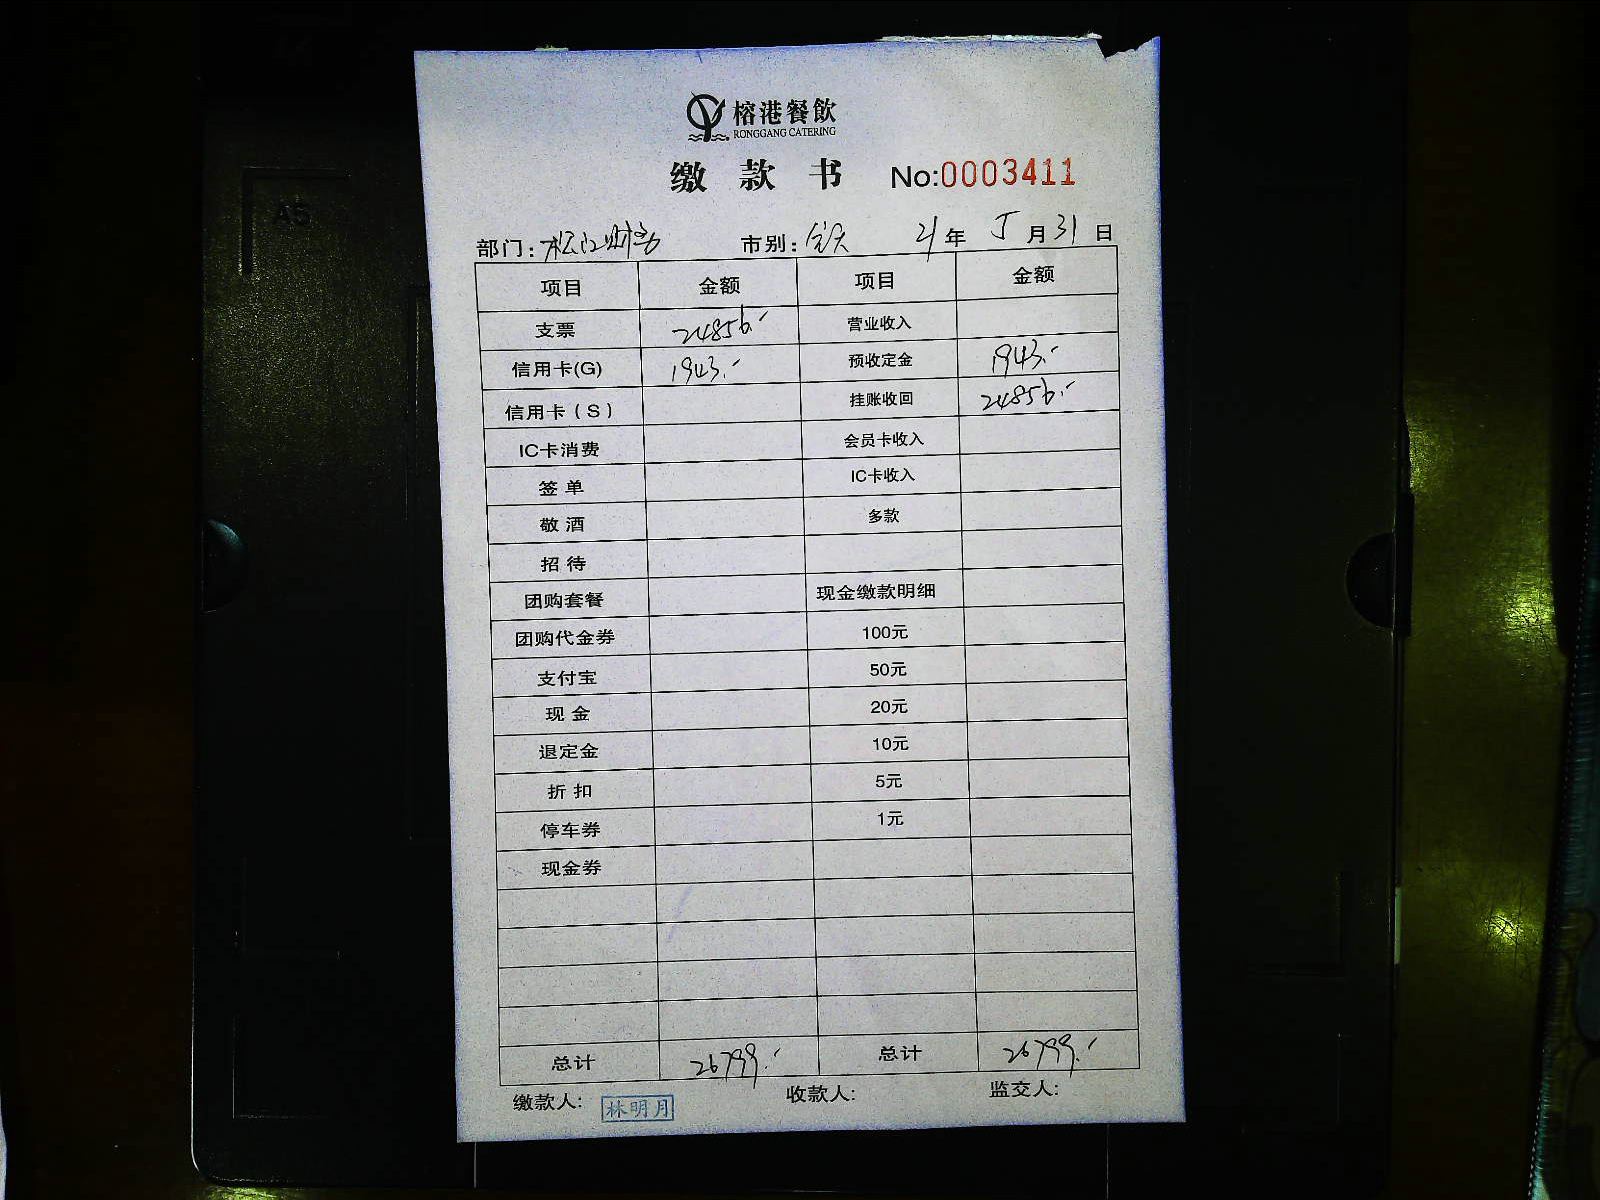 榕港餐飲
RONGGANG CATERING
缴款书 No:0003411
部门: 松江财务 市别: 全天 21年 5月31日
项目 金额 项目 金额
支票 24856.- 营业收入
信用卡(G) 1943.- 预收定金 1943.-
信用卡(S) 挂账收回 24856.-
IC卡消费 会员卡收入
签单 IC卡收入
敬酒 多款
招待
团购套餐 现金缴款明细
团购代金券 100元
支付宝 50元
现金 20元
退定金 10元
折扣 5元
停车券 1元
现金券
总计 26799.- 总计 26799.-
缴款人: 林明月 收款人: 监交人:
A5